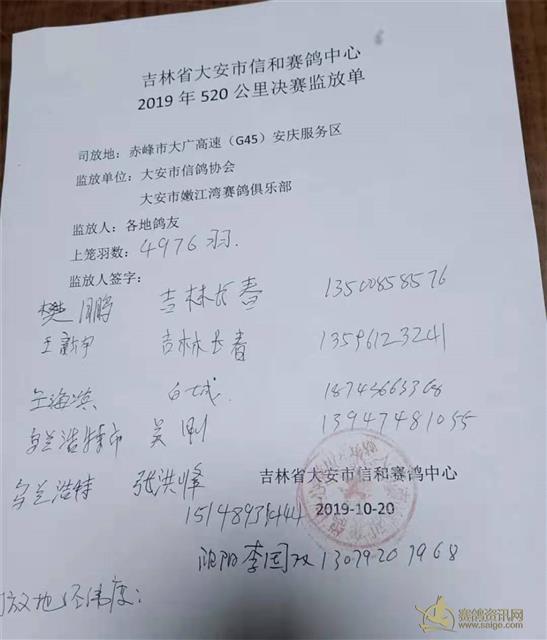 吉林省大安市信和赛鸽中心
2019 年 520 公里决赛监放单
司放地：赤峰市大广高速（G45）安庆服务区
监放单位：大安市信鸽协会
大安市嫩江湾赛鸽俱乐部
监放人：各地鸽友
上笼羽数：4976羽.
监放人签字：
樊鹏 吉林长春 13500858576
王新宇 吉林长春 13596123241
白城 18743663368
乌兰浩特市 吴刚 13947481055
乌兰浩特 张洪峰
吉林省大安市信和赛鸽中心
2019-10-20
李国 13079207968
放地经纬度：
赛鸽资讯网
www.saige.com